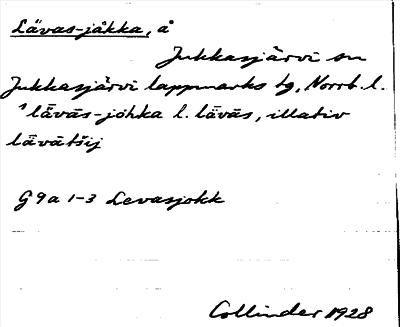 Lävas-jåkka, å
Jukkasjärvi sn
Jukkasjärvi lappmarks tg, Norrb. l.
lǟvās-johka l. lǟvās, illativ
lǟvātšij
G 9 a 1-3 Levasjokk
Collinder 1928